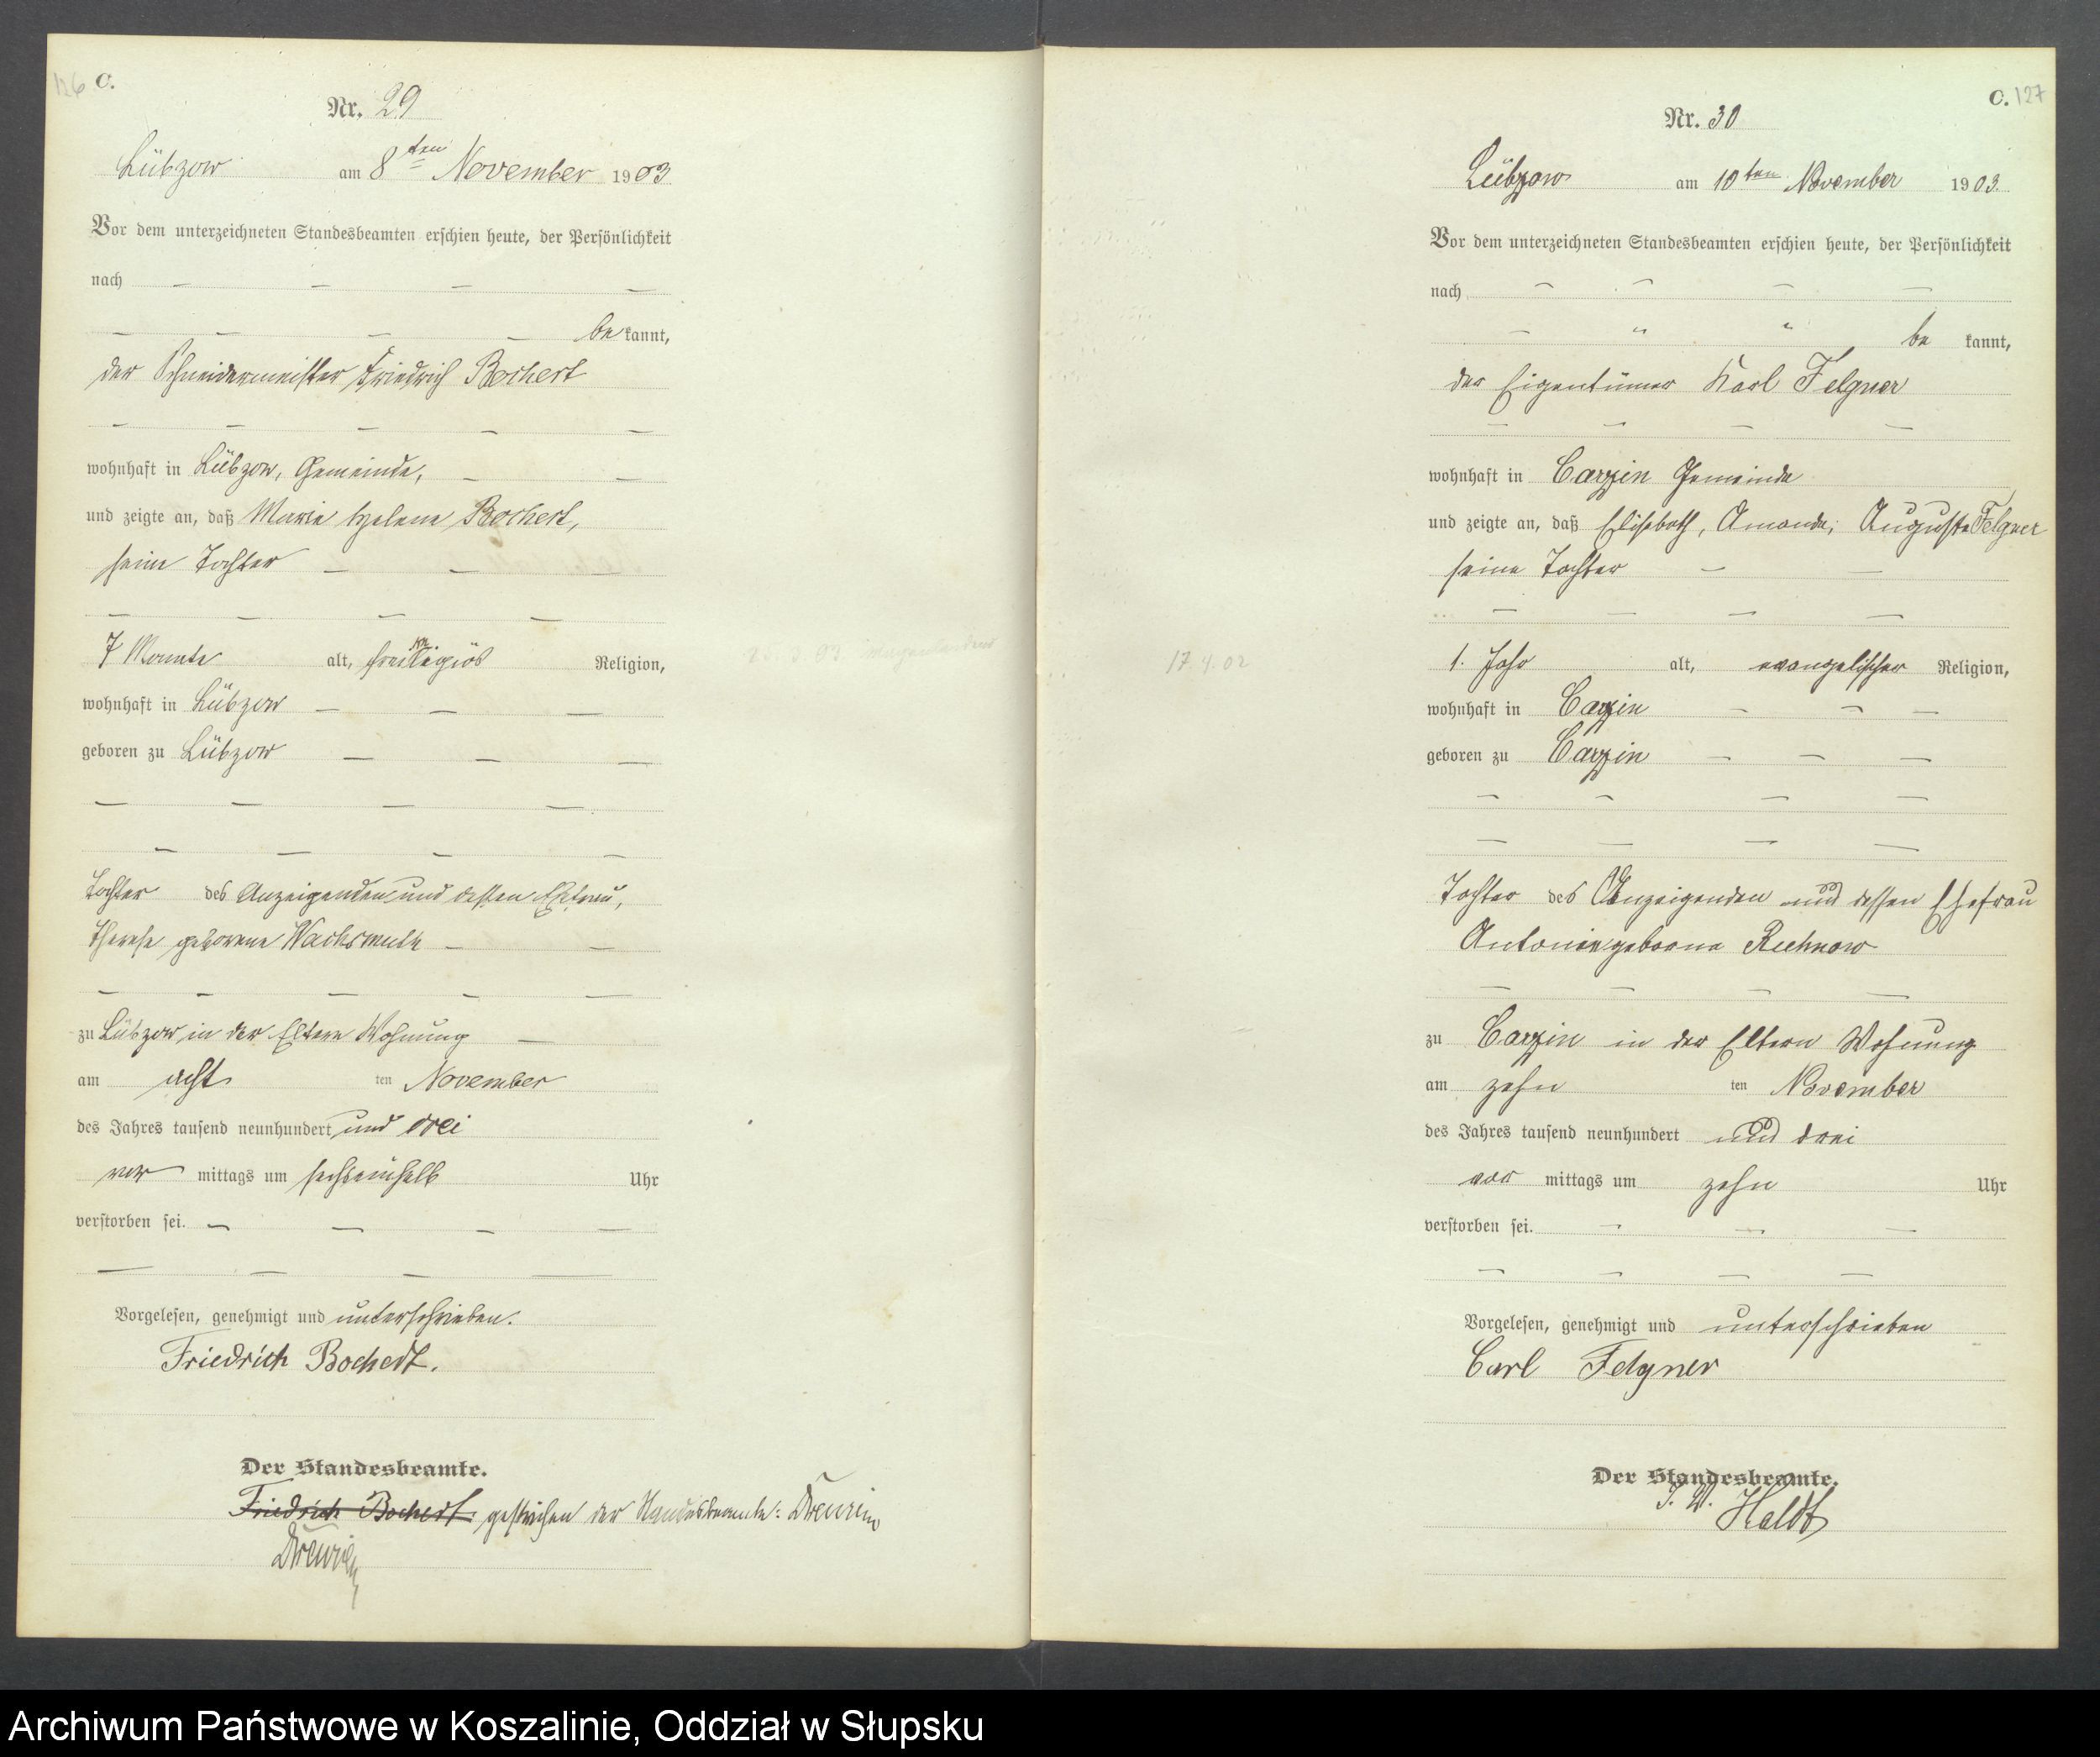 126 C.
Nr. 29
Lübzow am 8ten November 1903
Vor dem unterzeichneten Standesbeamten erschien heute, der Persönlichkeit
nach — — — —
— — — — be kannt,
der Schneidermeister Friedrich Bochert
— — — — —
wohnhaft in Lübzow, Gemeinde, — —
und zeigte an, daß Maria Helene Bochert,
seine Tochter — — —
— — — —
7 Monate alt, freireligiös Religion,
wohnhaft in Lübzow — — —
geboren zu Lübzow — — —
— — — —
— — — —
Tochter des Anzeigenden und dessen Ehefrau,
Therese geborene Wachsmuth — —
— — — — —
zu Lübzow in der Eltern Wohnung —
am acht ten November
des Jahres tausend neunhundert und drei
vor mittags um sechseinhalb Uhr
verstorben sei. — — — —
— — — —
Vorgelesen, genehmigt und unterschrieben.
Friedrich Bochert.
Der Standesbeamte.
Friedrich Bochert. gestrichen der Standesbeamte:
C. 127
Nr. 30
Lübzow am 10ten November 1903.
Vor dem unterzeichneten Standesbeamten erschien heute, der Persönlichkeit
nach — — — —
— " " be kannt,
der Eigentümer Karl Felgner
— — — —
wohnhaft in Carzin Gemeinde
und zeigte an, daß Elisabeth, Amanda, Auguste Felgner
seine Tochter — —
— — — —
17.4.02
1. Jahr alt, evangelischer Religion,
wohnhaft in Carzin — — —
geboren zu Carzin — — —
— — — —
— — — —
Tochter des Anzeigenden und dessen Ehefrau
Antonie geborne Ruhnow
— — — —
zu Carzin in der Eltern Wohnung
am zehn ten November
des Jahres tausend neunhundert und drei
vor mittags um zehn Uhr
verstorben sei. — — —
— — — —
Vorgelesen, genehmigt und unterschrieben
Carl Felgner
Der Standesbeamte.
Haldt
Archiwum Państwowe w Koszalinie, Oddział w Słupsku